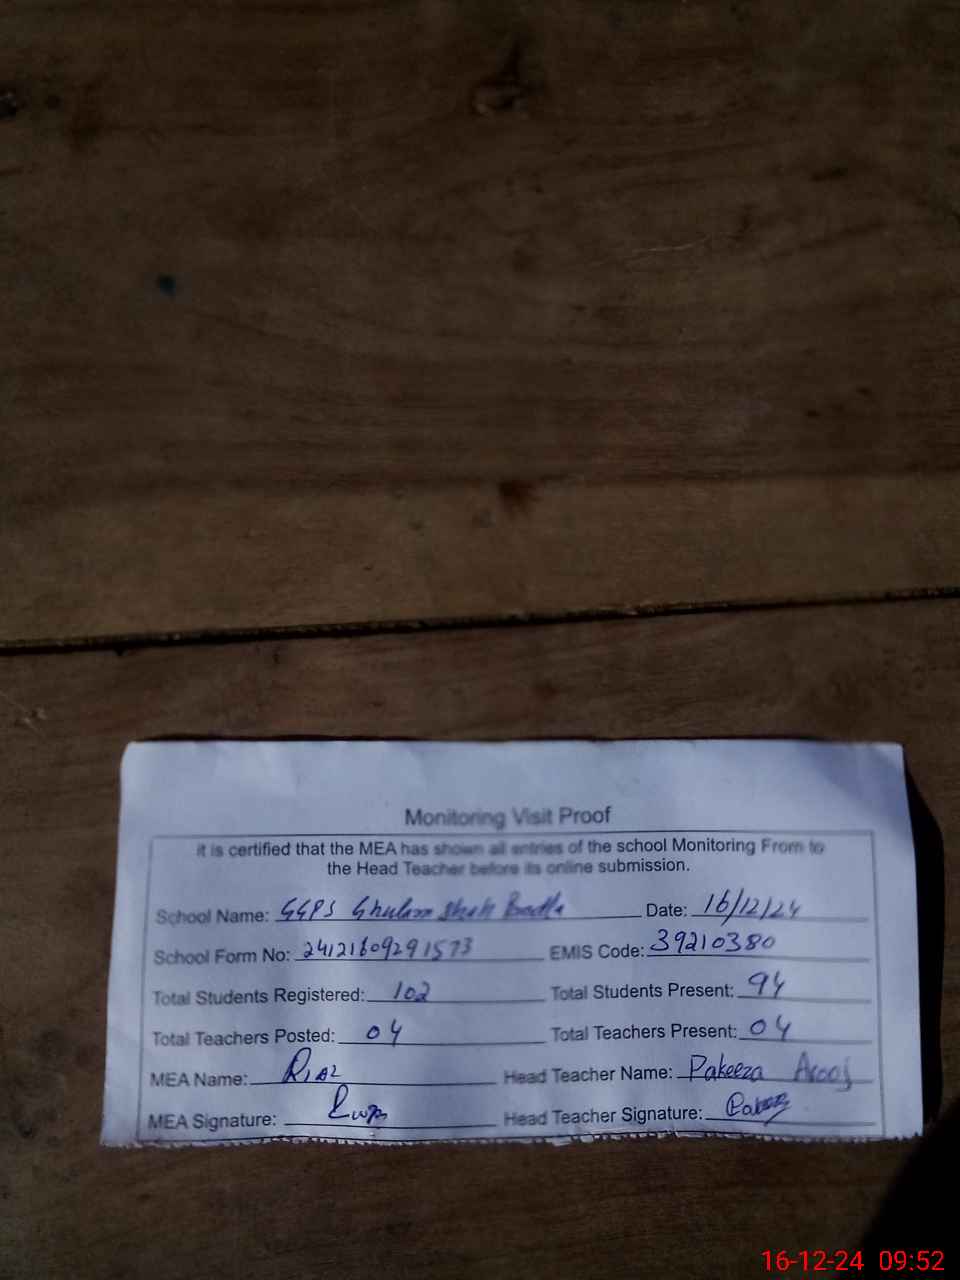 Monitoring Visit Proof
it is certified that the MEA has shown all entries of the school Monitoring From to
the Head Teacher before its online submission.
School Name: GGPS Ghulam Shah Bodla Date: 16/12/24
School Form No: 24121609291573 EMIS Code: 39210380
Total Students Registered: 102 Total Students Present: 94
Total Teachers Posted: 04 Total Teachers Present: 04
MEA Name: Riaz Head Teacher Name: Pakeeza Arooj
MEA Signature: Head Teacher Signature:
16-12-24 09:52